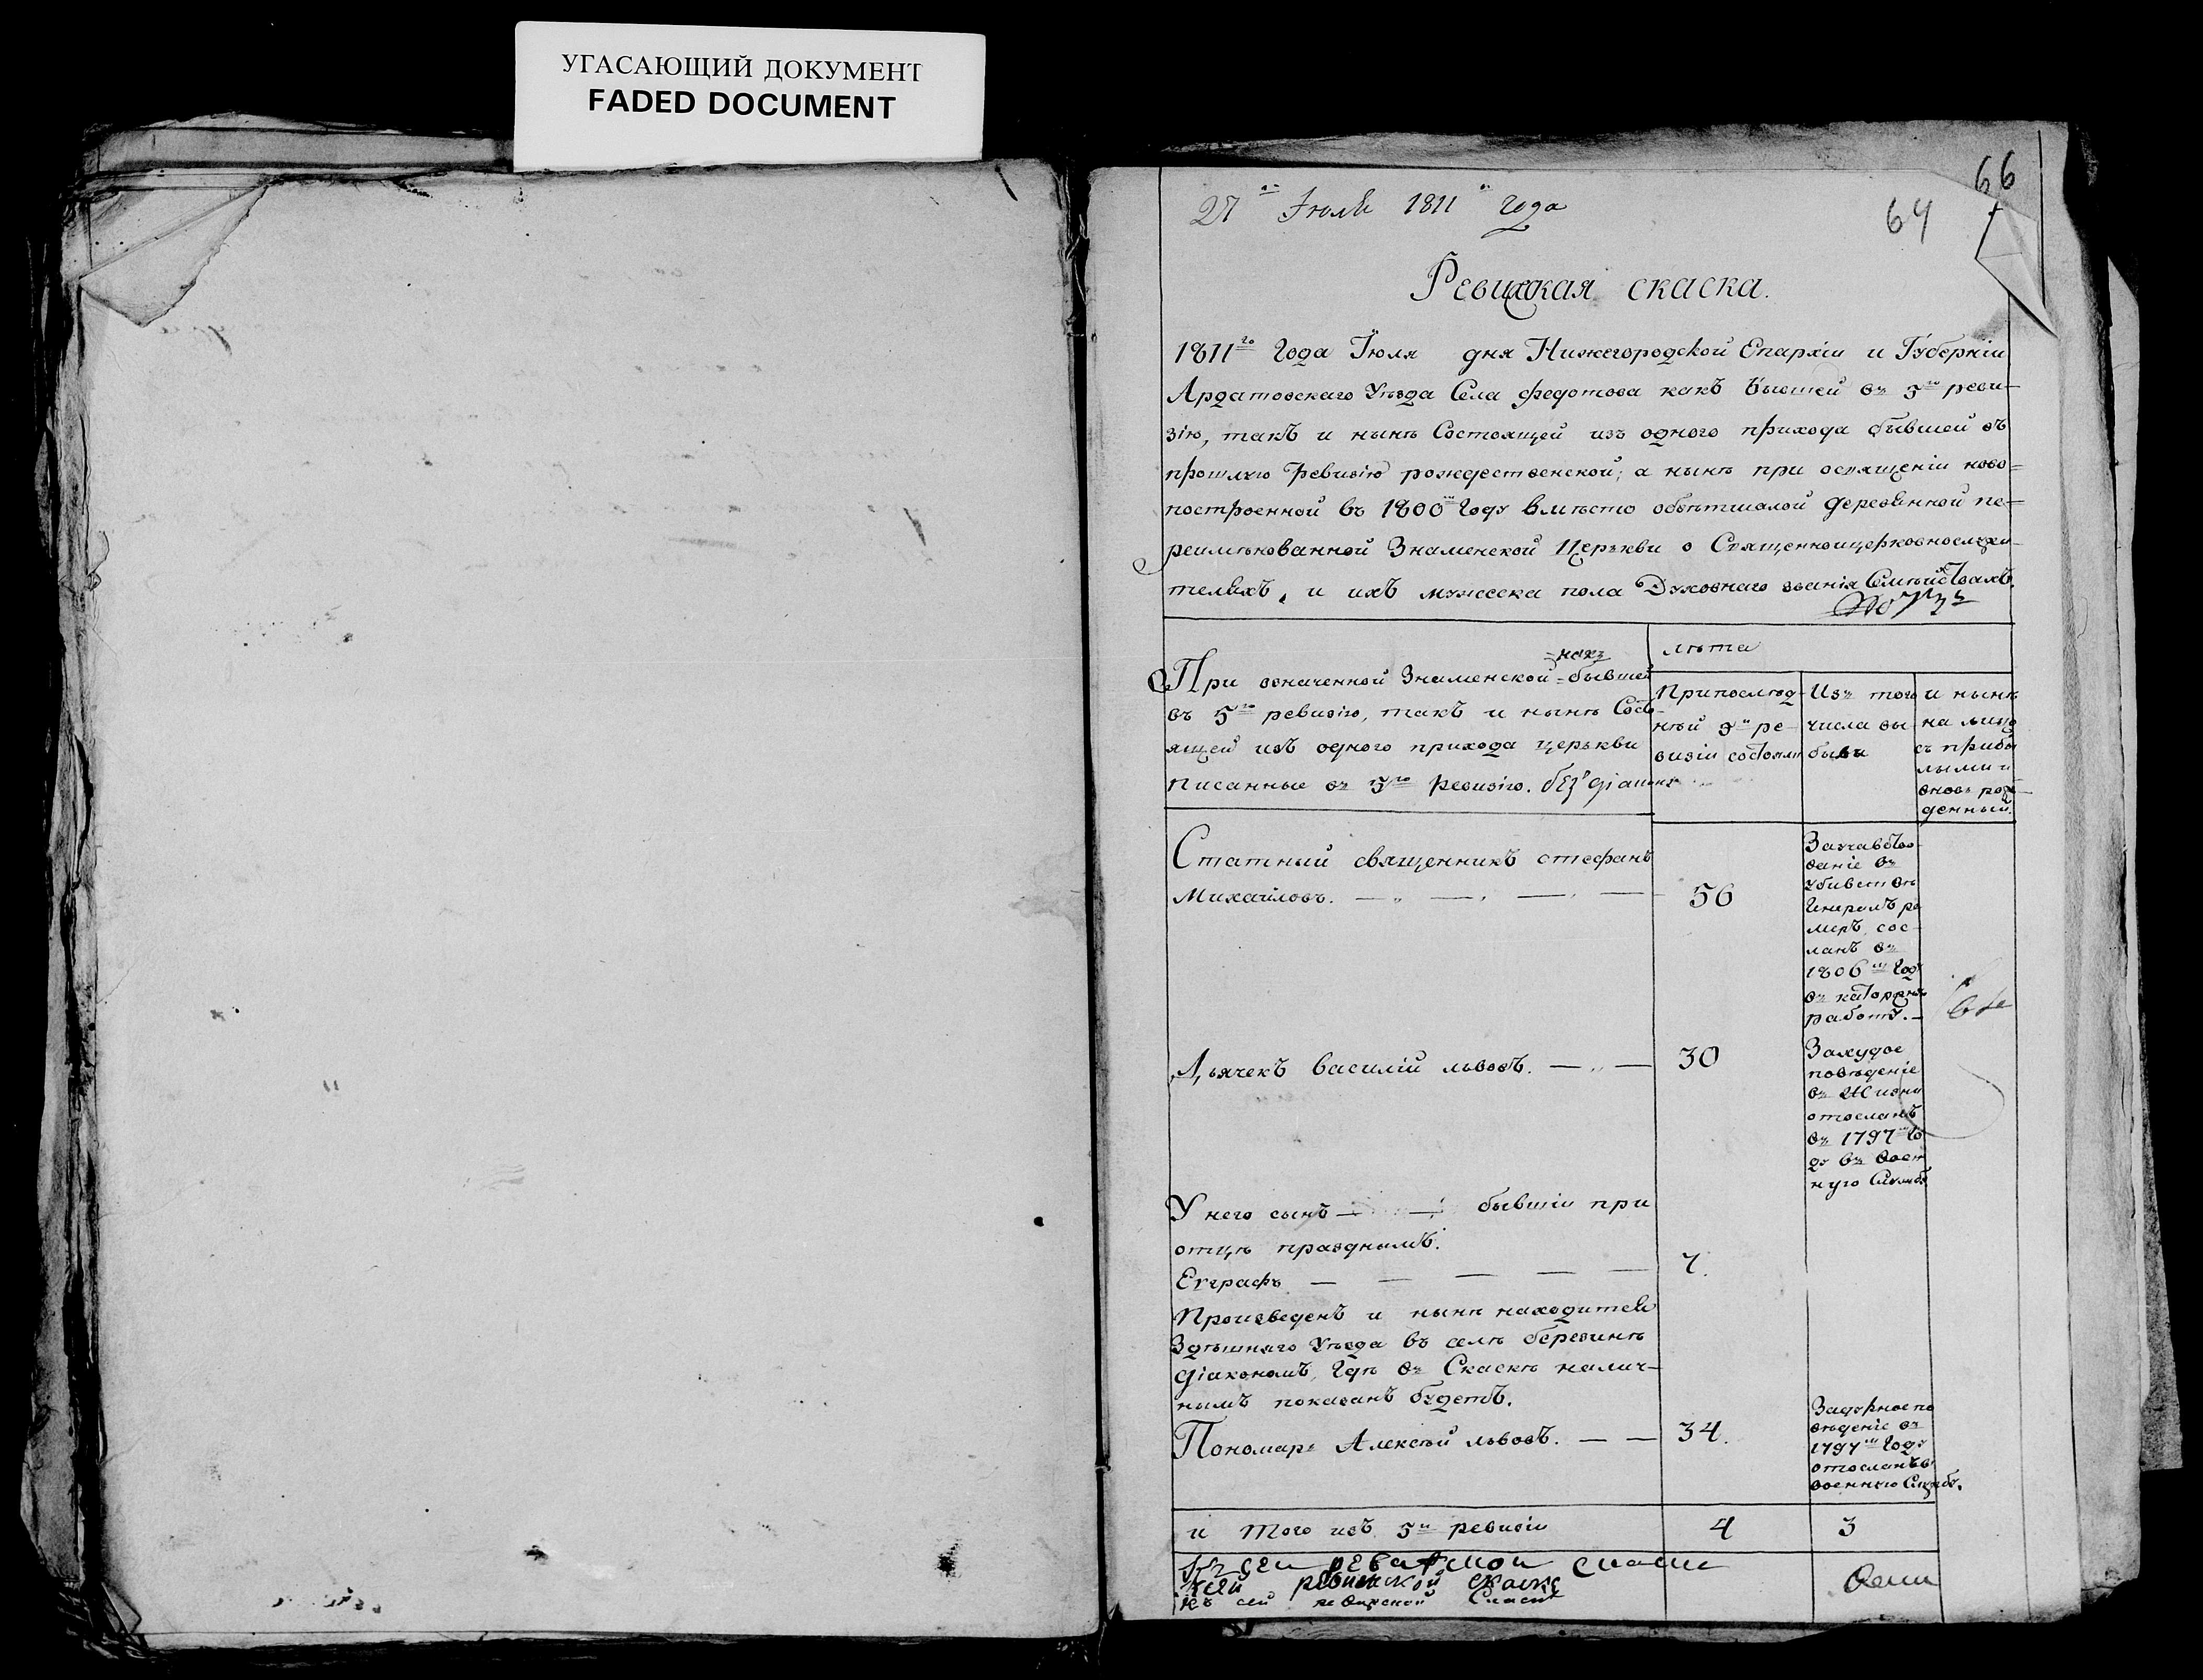 УГАСАЮЩИЙ ДОКУМЕНТ
FADED DOCUMENT
66
64
27 го Іюля 1811 го года
Ревижская скаска.
1811 го Года Іюля дня Нижегородской Епархіи и Губерніи
Ардатовскаго Уѣзда Села федотова какъ бывшей въ 5 ю реви-
зію, такъ и нынѣ Состоящей изъ одного прихода бывшей въ
прошлую Ревизію рождественской; а нынѣ при освященіи ново=
построенной въ 1800 м Году вмѣсто обветшалой деревянной пе=
реимѣнованной Знаменской Церькви о Священноицерковнослужи-
теляхъ, и ихъ мужеска пола Духовнаго званія Семѣйствахъ.
При означенной Знаменской = какъ = бывшей
въ 5 ю ревизію, такъ и нынѣ Состо-
ящей изъ одного прихода церькви
писанные въ 5 ю Ревизію. безъ діакона
лѣта
При послѣд-
нѣй 5 й ре-
визіи состояли
Изъ того
числа вы
были
и нынѣ
на лицо
съ прибы
лыми и
вновь рож-
денный.
Статный священникъ стефанъ
Михаиловъ.
56
За участво-
ваніе въ
убивствѣ
сос-
ланъ въ
1806 м Году
въ каторжну
работу.
Дьячекъ василій львовъ.
30
За худое
поведеніе
въ Жизни
отосланъ
въ 1797 м го
ду въ воен
ную Службу
У него сынъ бывшіи при
отцѣ празднымъ.
Евграфъ
7.
Произведенъ и нынѣ находится
Здѣшняго Уѣзда въ селѣ березинѣ
діакономъ, Гдѣ въ Скаскѣ налич-
нымъ показанъ будетъ.
Пономарь Алексѣй львовъ.
34.
За дурное по
ведѣніе въ
1797 м Году
отосланъ въ
военную Службу.
и того изъ 5 й ревизіи
4
3
Къ сеи ревижской скаске
К сей ревижской скаске
Къ сей ревижской Скаскѣ